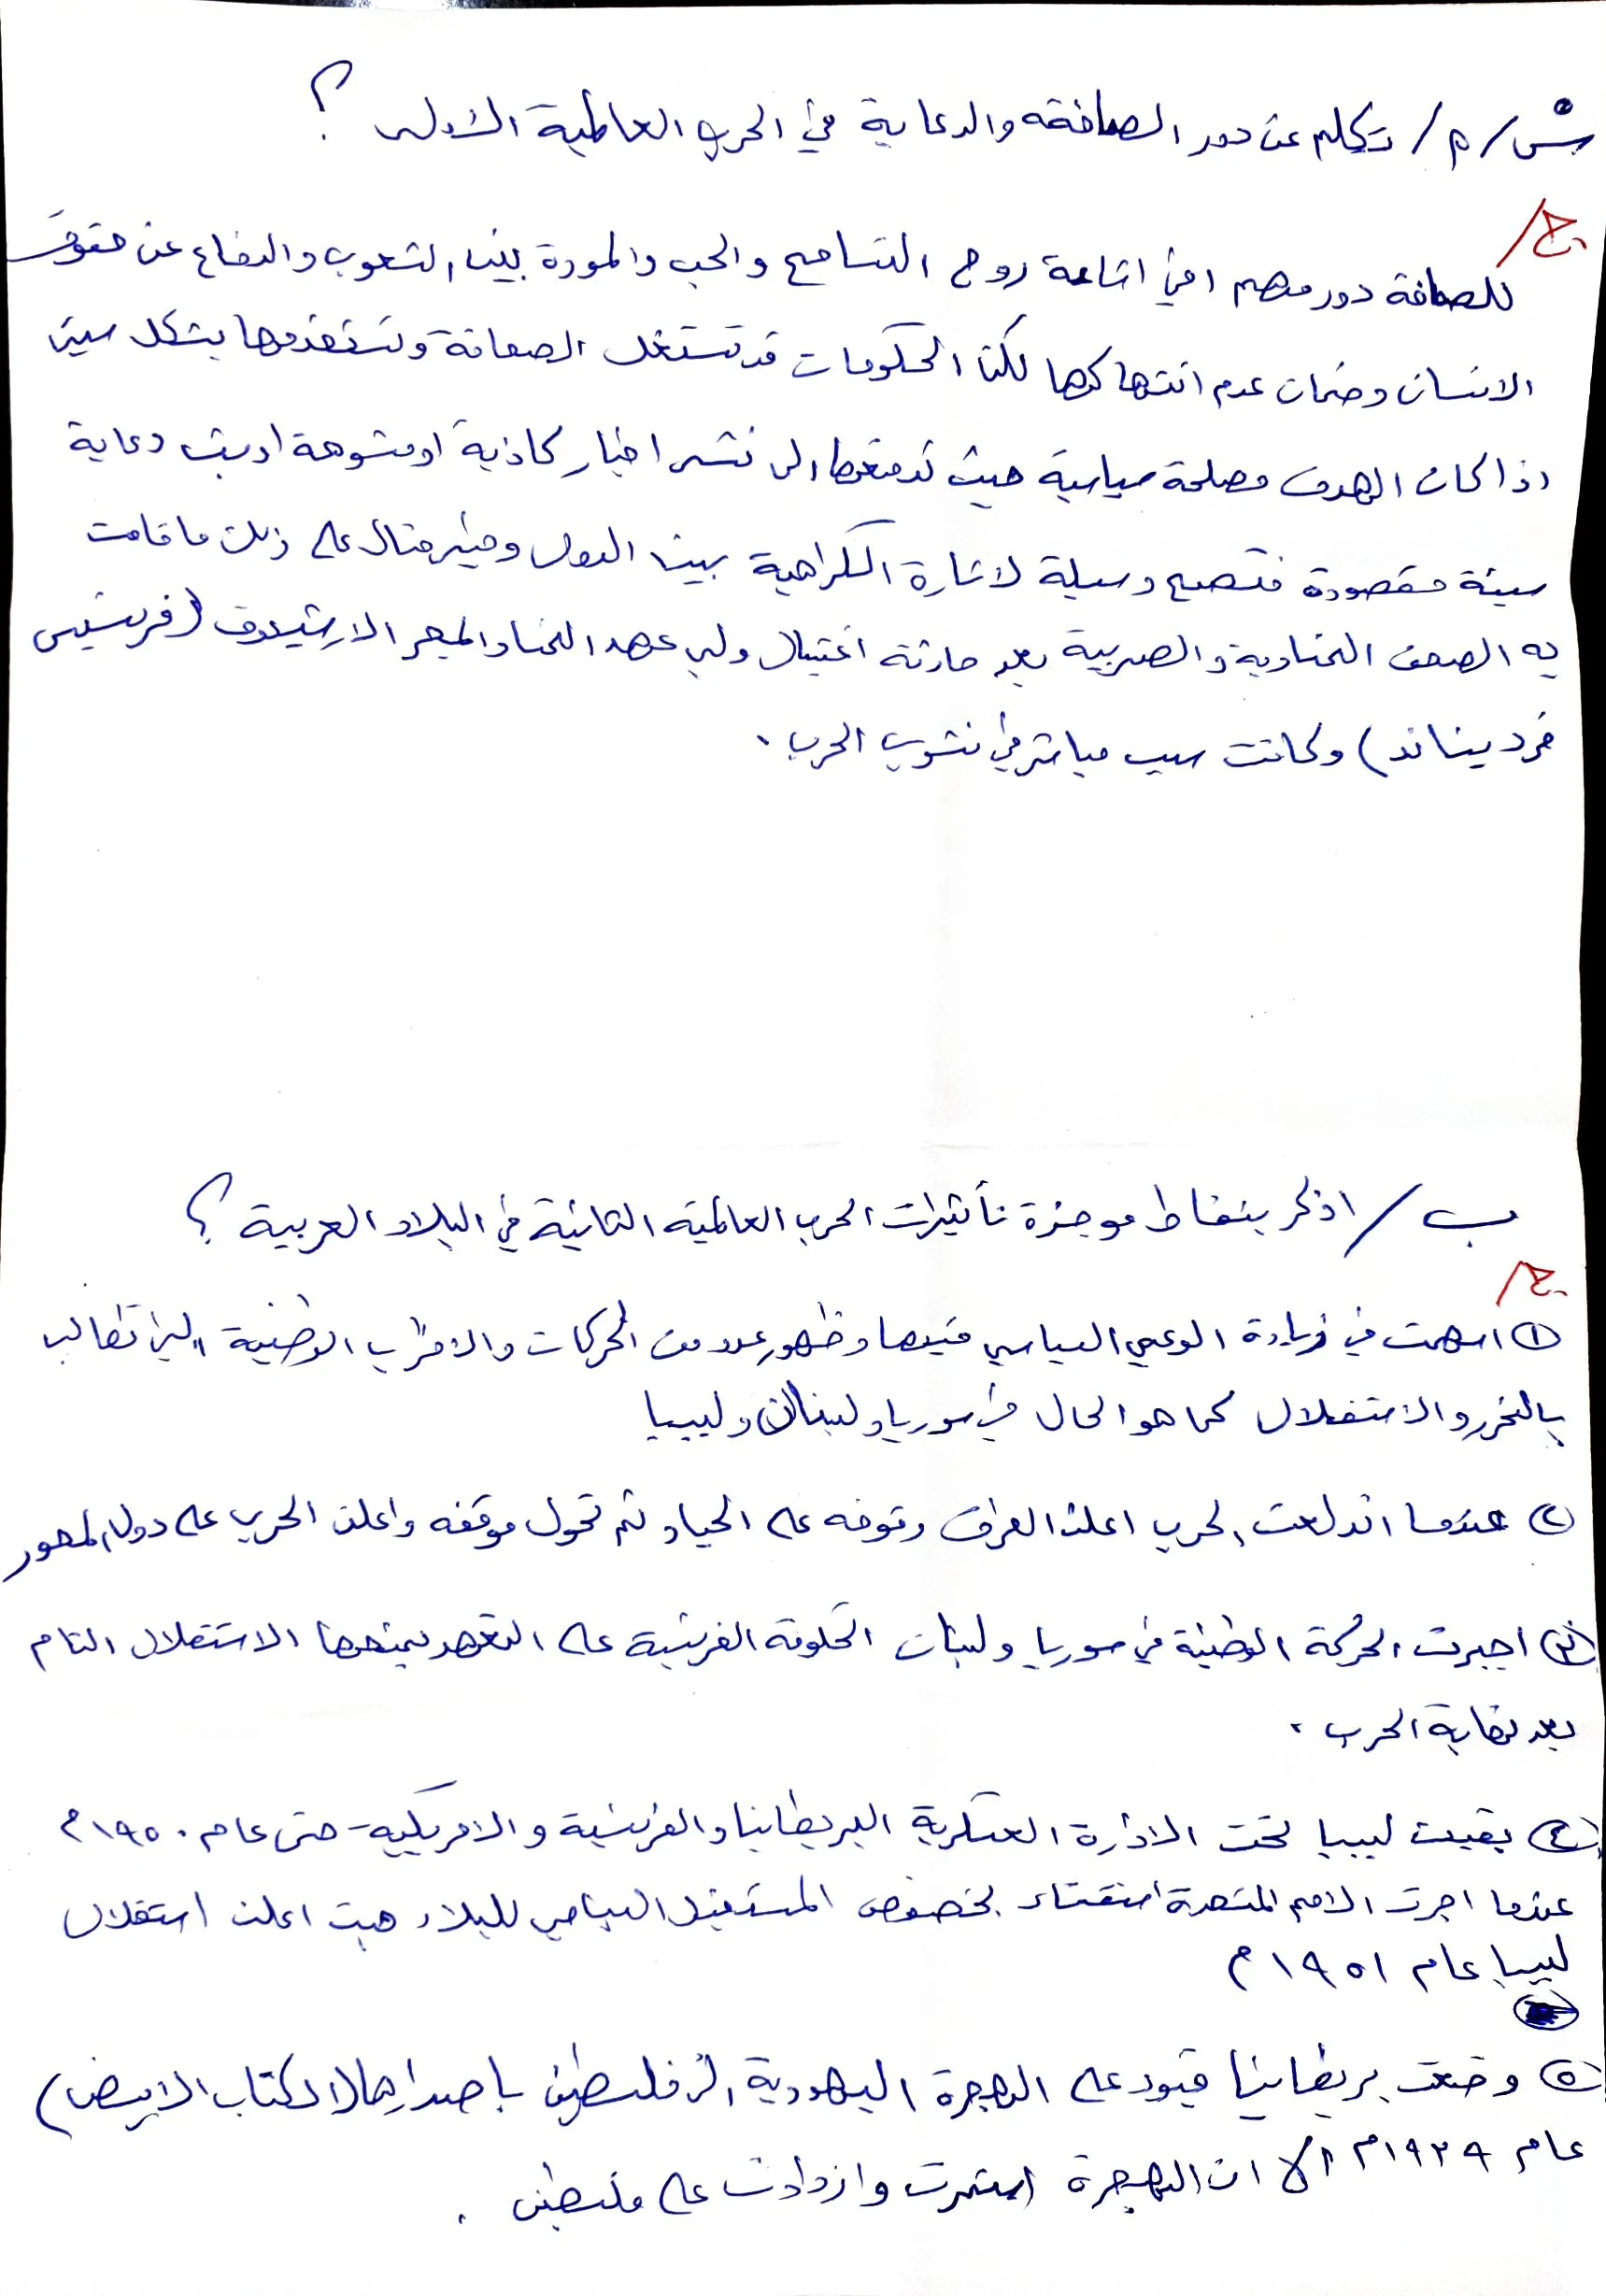 س/م/ تكلم عن دور الصحافة والدعاية في الحرب العالمية الاولى ؟
ج/
للصحافة دور مهم في اشاعة روح التسامح والحب والمودة بين الشعوب والدفاع عن حقوق
الانسان وضمان عدم انتهاكها لكن الحكومات قد تستغل الصحافة وتستخدمها بشكل سيئ
اذا كان الهدف مصلحة سياسية حيث تدفعها الى نشر اخبار كاذبة او مشوهة او بث دعاية
سيئة مقصودة فتصبح وسيلة لاثارة الكراهية بين الدول وخير مثال على ذلك ما قامت
به الصحف النمساوية والصربية بعد حادثة اغتيال ولي عهد النمسا والمجر الارشيدوق (فرنسيس
فرديناند) وكانت سبب مباشر في نشوب الحرب .
ب/ اذكر بنقاط موجزة تأثيرات الحرب العالمية الثانية في البلاد العربية ؟
ج/
① اسهمت في زيادة الوعي السياسي فيها وظهور عدد من الحركات والاحزاب الوطنية التي تطالب
بالتحرر والاستقلال كما هو الحال في سوريا ولبنان وليبيا
② عندما اندلعت الحرب اعلن العراق وقوفه على الحياد ثم تحول موقفه واعلن الحرب على دول المحور
③ اجبرت الحركة الوطنية في سوريا ولبنان الحكومة الفرنسية على التعهد بمنحها الاستقلال التام
بعد نهاية الحرب .
④ بقيت ليبيا تحت الادارة العسكرية البريطانيا والفرنسية والامريكية حتى عام ١٩٥٠م
عندما اجرت الامم المتحدة استفتاء بخصوص المستقبل السياسي للبلاد حيث اعلن استقلال
ليبيا عام ١٩٥١م
⑤ وضعت بريطانيا قيود على الهجرة اليهودية الى فلسطين باصدارها (الكتاب الابيض)
عام ١٩٣٩م الا ان الهجرة استمرت وازدادت على فلسطين .